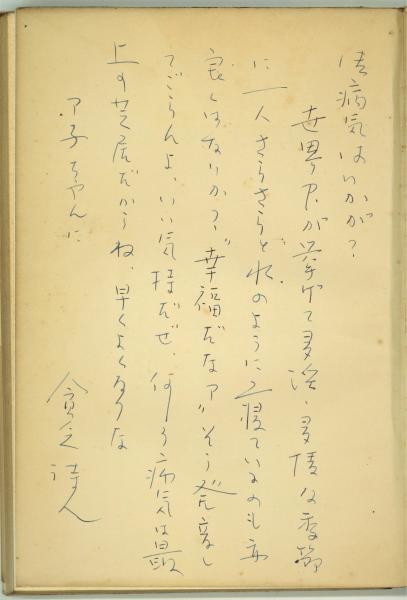 御病気はいかが?
世界中が挙げて多　・多情な季節
に一人さらさらと水のように寝ているのも亦
良くはないか？〝幸福だなア〟そう発音し
てごらんよ、いい気持だぜ、何しろ病気は最
上の芝居だからね、早くよくなるな
ア子ちゃんに
貧乏詩人